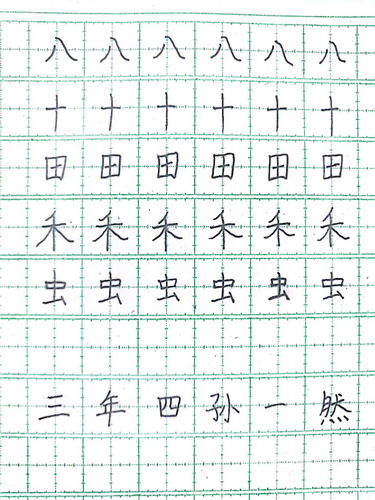 八八八八八八
十十十十十十
田田田田田田
禾禾禾禾禾禾
虫虫虫虫虫虫
三年四孙一然